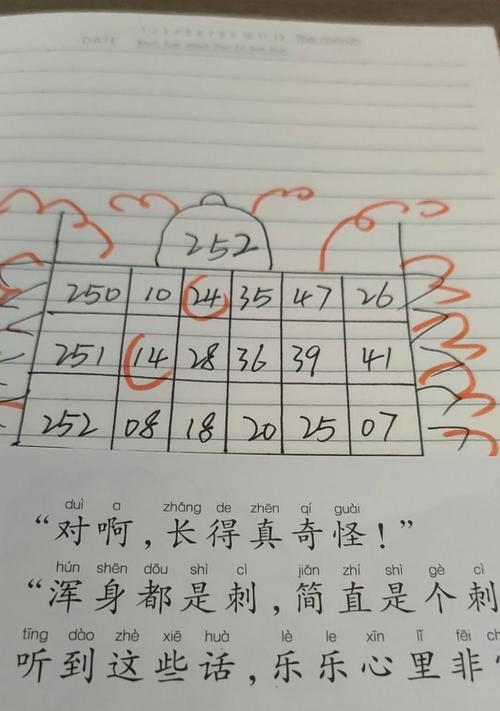 DATE
1 2 3 4 5 6 7 8 9 10 11 12 The month
252
250 10 24 35 47 26
251 14 28 36 39 41
252 08 18 20 25 07
duì a zhǎng de zhēn qí guài
“对啊，长得真奇怪！”
hún shēn dōu shì cì jiǎn zhí shì gè cì
“浑身都是刺，简直是个刺
tīng dào zhè xiē huà lè le xīn lǐ fēi
听到这些话，乐乐心里非